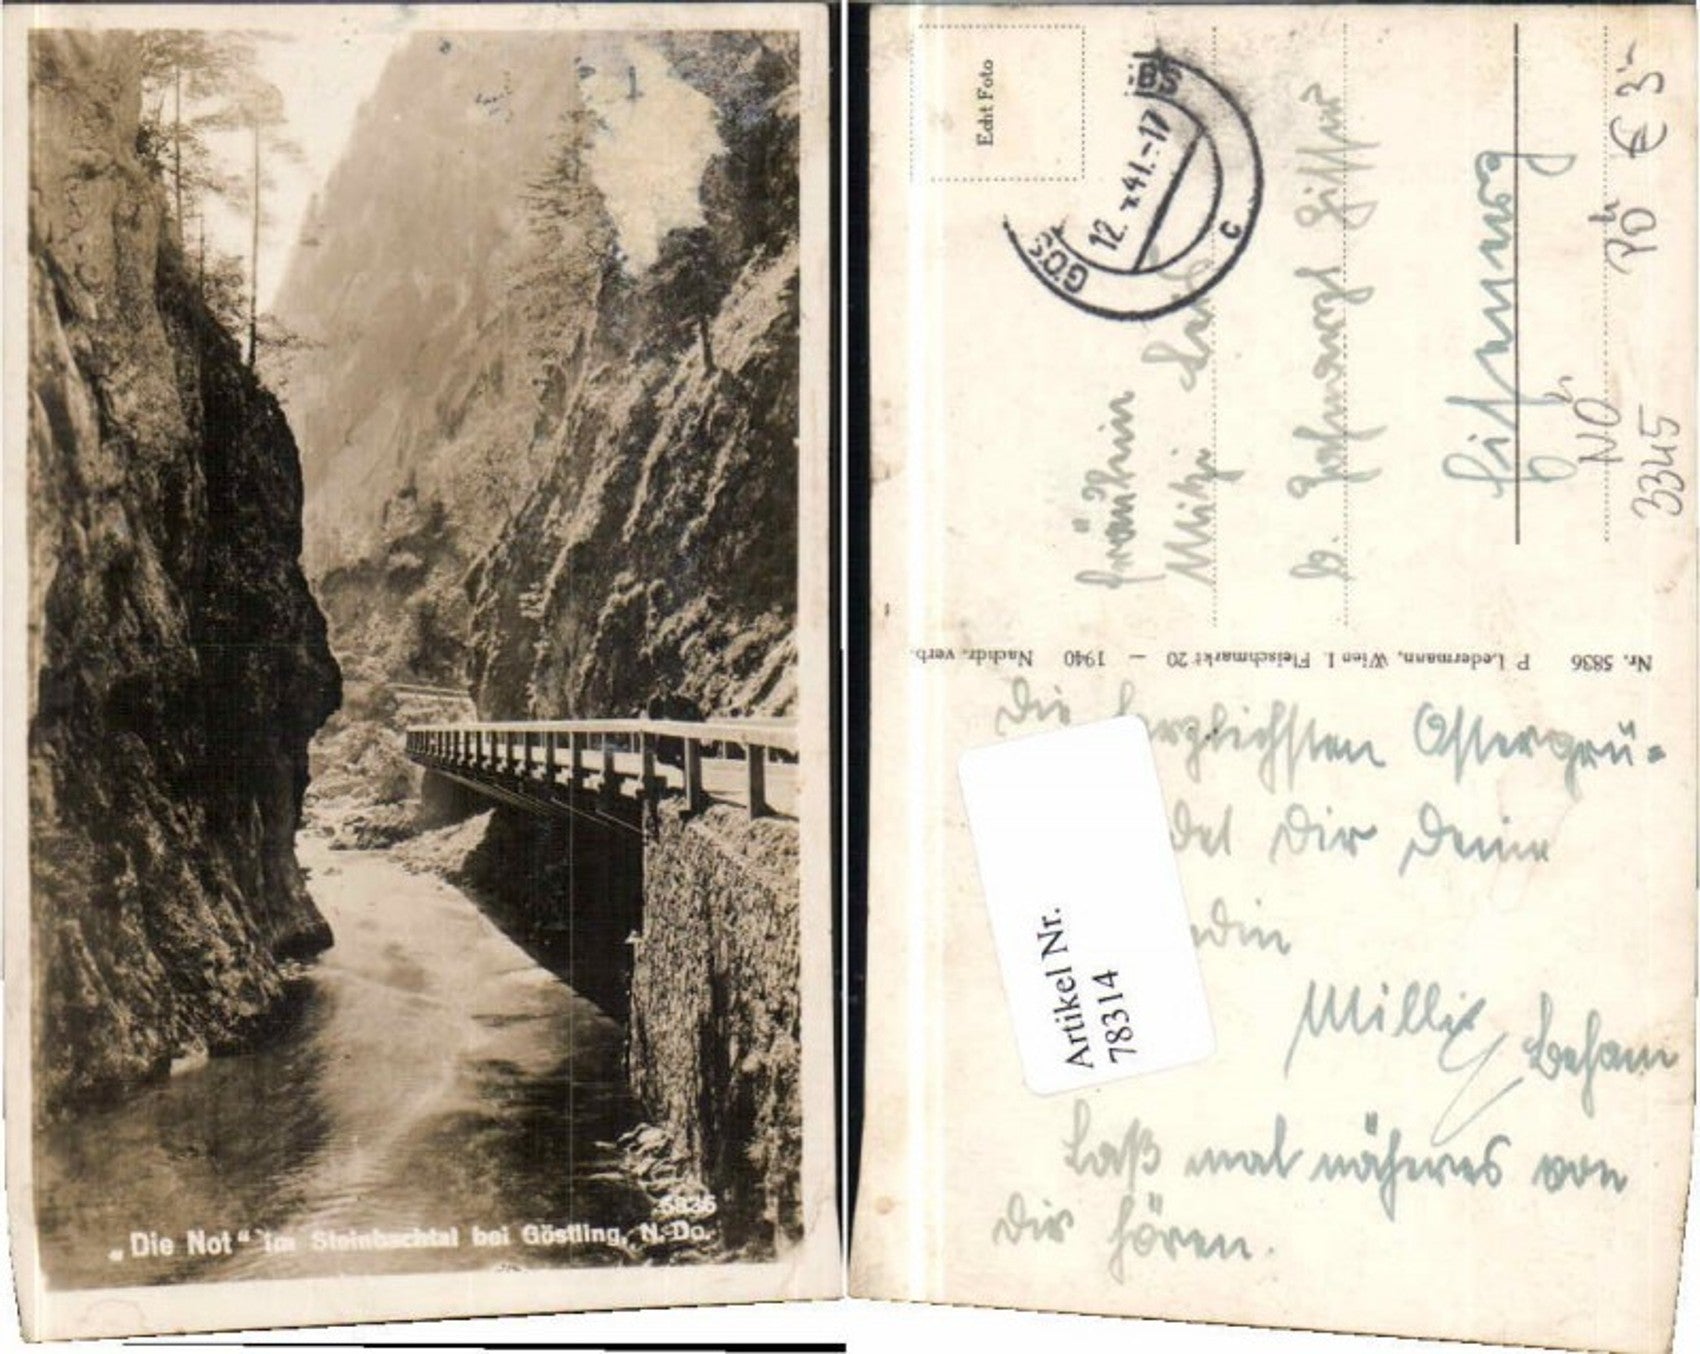 5836
„Die Not“ im Steinbachtal bei Göstling, N.-Do.
Echt Foto
GÖS
12. X 41.-17
BS
c
Fräulein
Mitzi
b.
NÖ
Pb
€ 3-
3345
Nr. 5836 P. Ledermann, Wien I. Fleischmarkt 20 — 1940 Nachdr. verb.
Die herzlichsten Ostergrü=
det Dir Deine
Milli
Laß mal näheres von
Dir hören.
Artikel Nr.
78314